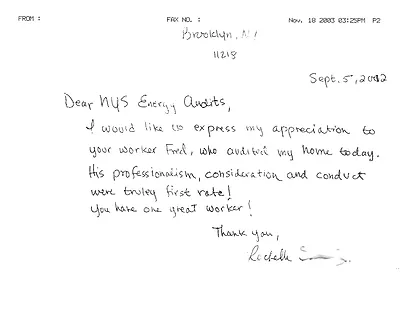 FROM : FAX NO. : Nov. 18 2003 03:25PM P2
Brooklyn, NY
11218
Sept. 5, 2002
Dear NYS Energy Audits,
I would like to express my appreciation to
your worker Fred, who audited my home today.
His professionalism, consideration and conduct
were truley first rate!
You have one great worker!
Thank you,
Rochelle